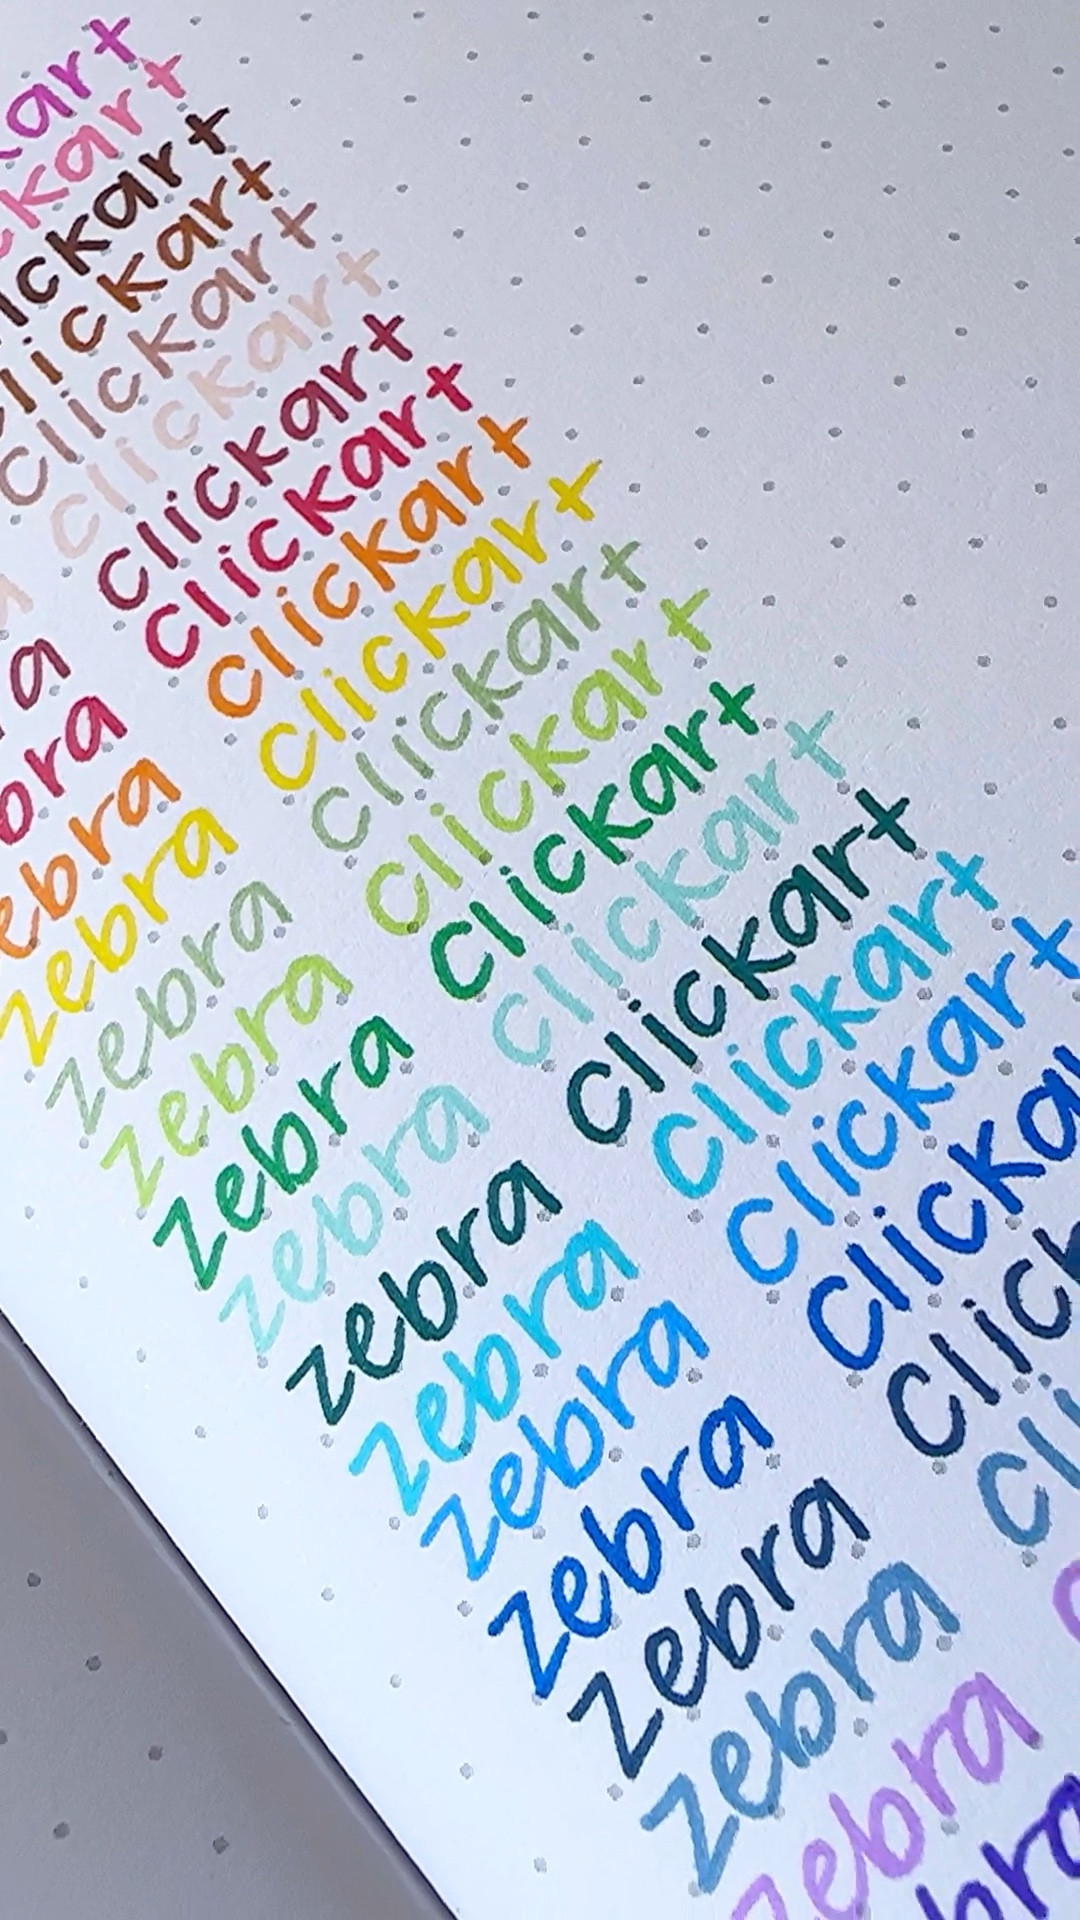 kart
ckart
ickart
lickart
clickart
a clickart
ra clickart
bra clickart
ebra clickart
zebra clickart
zebra clickart
zebra clickart
zebra clickart
zebra clickart
zebra clickart
zebra clickart
zebra clickart
zebra clicka
zebra click
zebra cli
zebra c
bra